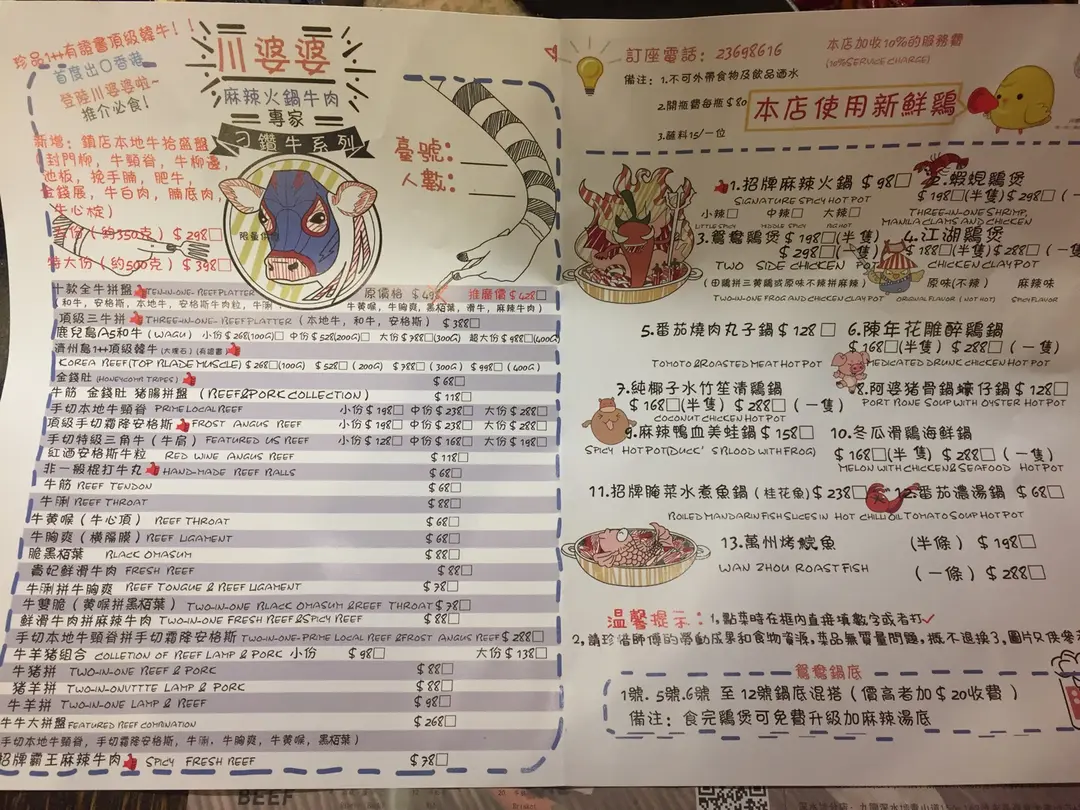 珍品1++有證書頂級韓牛!!
首度出口香港
登陸川婆婆啦~
推介必食!
川婆婆
麻辣火鍋牛肉
專家
刁鑽牛系列
新增: 鎮店本地牛拾盛盤
(封門柳, 牛頸脊, 牛柳邊,
池板, 挽手腩, 肥牛,
金錢展, 牛白肉, 腩底肉,
牛心椗)
(約350克) $298□
特大份 (約500克) $398□
臺號:
人數:
十款全牛拼盤 TEN-IN-ONE-BEEF PLATTER 原價格 $498 推廣價 $428□
(和牛, 安格斯, 本地牛, 安格斯牛肉粒, 牛脷 牛黃喉, 牛胸爽, 黑栢葉, 滑牛, 麻辣牛肉)
頂級三牛拼 THREE-IN-ONE-BEEF PLATTER (本地牛, 和牛, 安格斯) $388□
鹿兒島A5和牛 (WAGU) 小份 $268(100G)□ 中份 $528(200G)□ 大份 $788□(300G) 超大份 $988□(400G)
濟州島1++頂級韓牛 (大理石) (有證書)
KOREA BEEF(TOP BLADE MUSCLE) $268□(100G) $528□ (200G) $788□ (300G) $998□ (400G)
金錢肚 (HONEYCOMB TRIPES) $68□
牛筋 金錢肚 豬腸拼盤 (BEEF&PORK COLLECTION) $118□
手切本地牛頸脊 PRIME LOCAL BEEF 小份 $198□ 中份 $238□ 大份 $288□
頂級手切霜降安格斯 FROST ANGUS BEEF 小份 $198□ 中份 $238□ 大份 $288□
手切特級三角牛 (牛肩) FEATURED US BEEF 小份 $128□ 中份 $168□ 大份 $198□
紅酒安格斯牛粒 RED WINE ANGUS BEEF $118□
非一般棍打牛丸 HAND-MADE BEEF BALLS $68□
牛筋 BEEF TENDON $68□
牛脷 BEEF THROAT $88□
牛黃喉 (牛心頂) BEEF THROAT $68□
牛胸爽 (橫膈膜) BEEF LIGAMENT $68□
脆黑栢葉 BLACK OMASUM $88□
貴妃鮮滑牛肉 FRESH BEEF $88□
牛脷拼牛胸爽 BEEF TONGUE & BEEF LIGAMENT $78□
牛雙脆 (黃喉拼黑栢葉) TWO-IN-ONE BLACK OMASUM &REEF THROAT $78□
鮮滑牛肉拼麻辣牛肉 TWO-IN-ONE FRESH BEEF&SPICY BEEF $88□
手切本地牛頸脊拼手切霜降安格斯 TWO-IN-ONE-PRIME LOCAL BEEF &FROST ANGUS BEEF $288□
牛羊豬組合 COLLETION OF BEEF LAMP & PORK 小份 $98□ 大份 $138□
牛豬拼 TWO-IN-ONE BEEF & PORK $88□
豬羊拼 TWO-IN-ONUTTTE LAMP & PORK $88□
牛羊拼 TWO-IN-ONE LAMP & BEEF $98□
牛牛大拼盤 FEATURED BEEF COMBINATION $268□
手切本地牛頸脊, 手切霜降安格斯, 牛脷, 牛胸爽, 牛黃喉, 黑栢葉)
招牌霸王麻辣牛肉 SPICY FRESH BEEF $78□
訂座電話: 23698616
本店加收10%的服務費
(10% SERVICE CHARGE)
備注: 1.不可外帶食物及飲品酒水
2.開瓶費每瓶$80
3.蘸料15/一位
本店使用新鮮鷄
1.招牌麻辣火鍋 $98□
小辣□ 中辣□ 大辣□
SIGNATURE SPICY HOT POT
LITTLE SPICY MIDDLE SPICY BIG HOT
2.蝦蜆鷄煲
$198□(半隻) $298□ (一
THREE-IN-ONE SHRIMP,
MANILA CLAMS AND CHICKEN
3.鴛鴦鷄煲 $198□(半隻)
$298□ (一隻)
TWO SIDE CHICKEN POT
(田鷄拼三黃鷄或原味不辣拼麻辣)
TWO-IN-ONE FROG AND CHICKEN CLAY POT
4.江湖鷄煲
$188□(半隻)$288□ (一隻
CHICKEN CLAY POT
原味(不辣) 麻辣味
ORIGINAL FLAVOR (NOT HOT) SPICY FLAVOR
5.番茄燒肉丸子鍋 $128□
TOMATO & ROASTED MEAT HOT POT
6.陳年花雕醉鷄鍋
$168□(半隻) $288□ (一隻)
MEDICATED DRUNK CHICKEN HOT POT
7.純椰子水竹笙清鷄鍋
$168□(半隻) $288□ (一隻)
COCONUT CHICKEN HOT POT
8.阿婆豬骨鍋蠔仔鍋 $128□
PORT BONE SOUP WITH OYSTER HOT POT
9.麻辣鴨血美蛙鍋 $158□
SPICY HOT POT(DUCK'S BLOOD WITH FROG)
10.冬瓜滑鷄海鮮鍋
$168□(半隻) $288□ (一隻)
MELON WITH CHICKEN & SEAFOOD HOT POT
11.招牌醃菜水煮魚鍋 (桂花魚)$238□
BOILED MANDARIN FISH SLICES IN HOT CHILLI OIL
12.番茄濃湯鍋 $68□
TOMATO SOUP HOT POT
13.萬州烤鯇魚 (半條) $198□
WAN ZHOU ROAST FISH (一條) $288□
溫馨提示: 1,點菜時在框內直接填數字或者打✓
2,請珍惜師傅的勞動成果和食物資源,菜品無質量問題,概不退換3,圖片只供參
鴛鴦鍋底
1號. 5號.6號 至 12號鍋底混搭 (價高者加 $20收費)
備注: 食完鷄煲可免費升級加麻辣湯底
BEEF